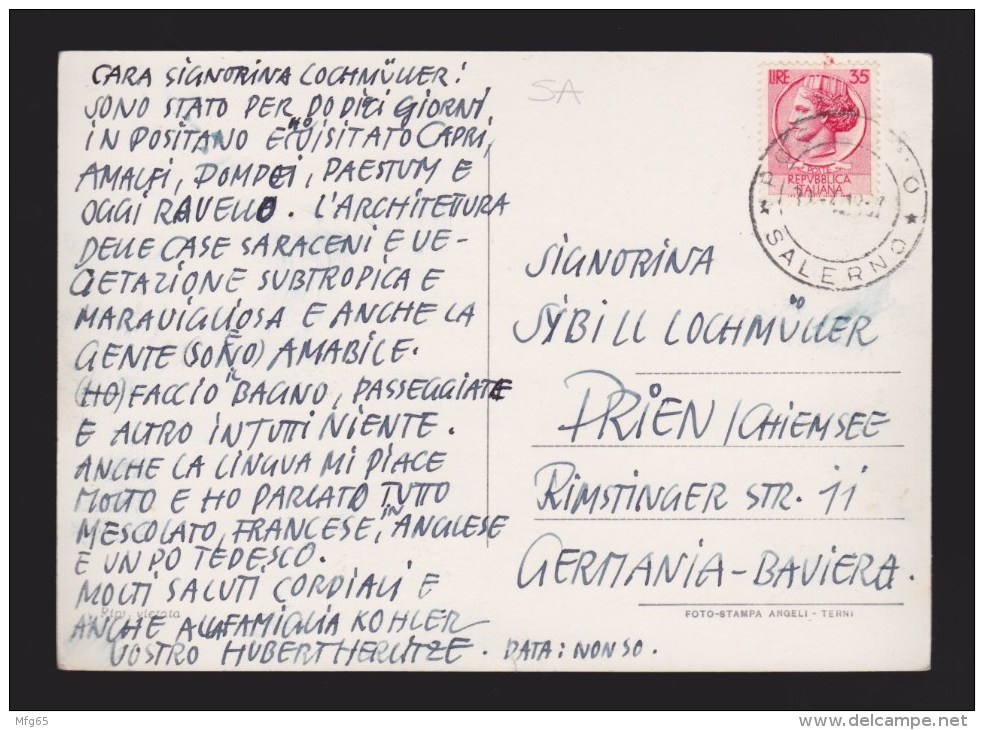 CARA SIGNORINA LOCHMÜLLER!
SONO STATO PER DODICI GIORNI
IN POSITANO E HO VISITATO CAPRI,
AMALFI, POMPEI, PAESTUM E
OGGI RAVELLO. L'ARCHITETTURA
DELLE CASE SARACENI E VE-
GETAZIONE SUBTROPICA E
MARAVIGLIOSA E ANCHE LA
GENTE (SONO) È AMABILE.
(HO) FACCIO IN BAGNO, PASSEGGIATE
E ALTRO IN TUTTI NIENTE.
ANCHE LA LINGUA MI PIACE
MOLTO E HO PARLATO TUTTO
MESCOLATO, FRANCESE, IN ANGLESE
E UN PO TEDESCO.
MOLTI SALUTI CORDIALI E
ANCHE ALLA FAMIGLIA KOHLER
VOSTRO HUBERT HERLITZE. DATA: NON SO.
Rip. vietata
SA
LIRE 35
POSTE
REPVBBLICA
ITALIANA
SALERNO
SIGNORINA
SYBILL LOCHMÜLLER
PRIEN/CHIEMSEE
RIMSTINGER STR. 11
GERMANIA-BAVIERA.
FOTO-STAMPA ANGELI - TERNI
Mfg65
www.delcampe.net